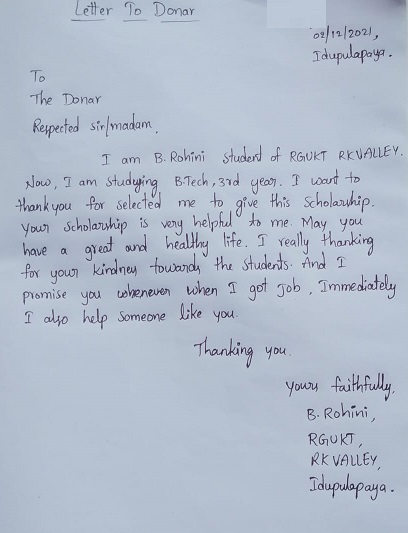 Letter To Donar
02/12/2021,
Idupulapaya.
To
The Donar
Respected sir/madam,
I am B. Rohini student of RGUKT RK VALLEY.
Now, I am studying B.Tech, 3rd year. I want to
thankyou for selected me to give this scholarship.
Your scholarship is very helpful to me. May you
have a great and healthy life. I really thanking
for your kindney towards the students. And I
promise you whenever when I got job, Immediately
I also help someone like you.
Thanking you.
yours faithfully,
B. Rohini,
RGUKT,
RK VALLEY,
Idupulapaya.